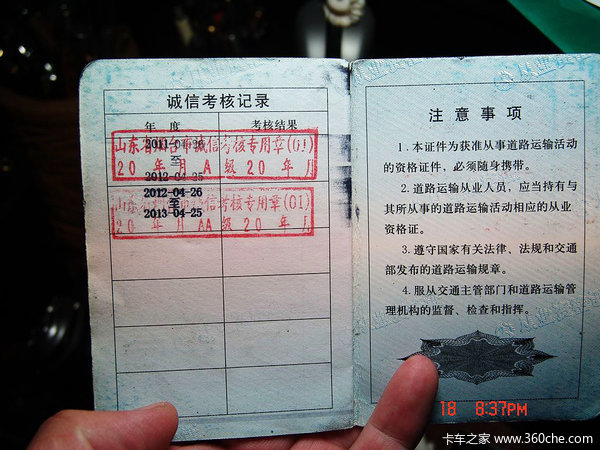 诚信考核记录
年 度 考核结果
山东省烟台市诚信考核专用章(01)
至
20 年 月 A 级 20 年 月
2012-04-25
2012-04-26
山东省烟台市诚信考核专用章(01)
至
2013-04-25
20 年 月 AA 级 20 年 月
注意事项
1.本证件为获准从事道路运输活动
的资格证件，必须随身携带。
2.道路运输从业人员，应当持有与
其所从事的道路运输活动相应的从业
资格证。
3.遵守国家有关法律、法规和交通
部发布的道路运输规章。
4.服从交通主管部门和道路运输管
理机构的监督、检查和指挥。
18 8:37PM
卡车之家 www.360che.com